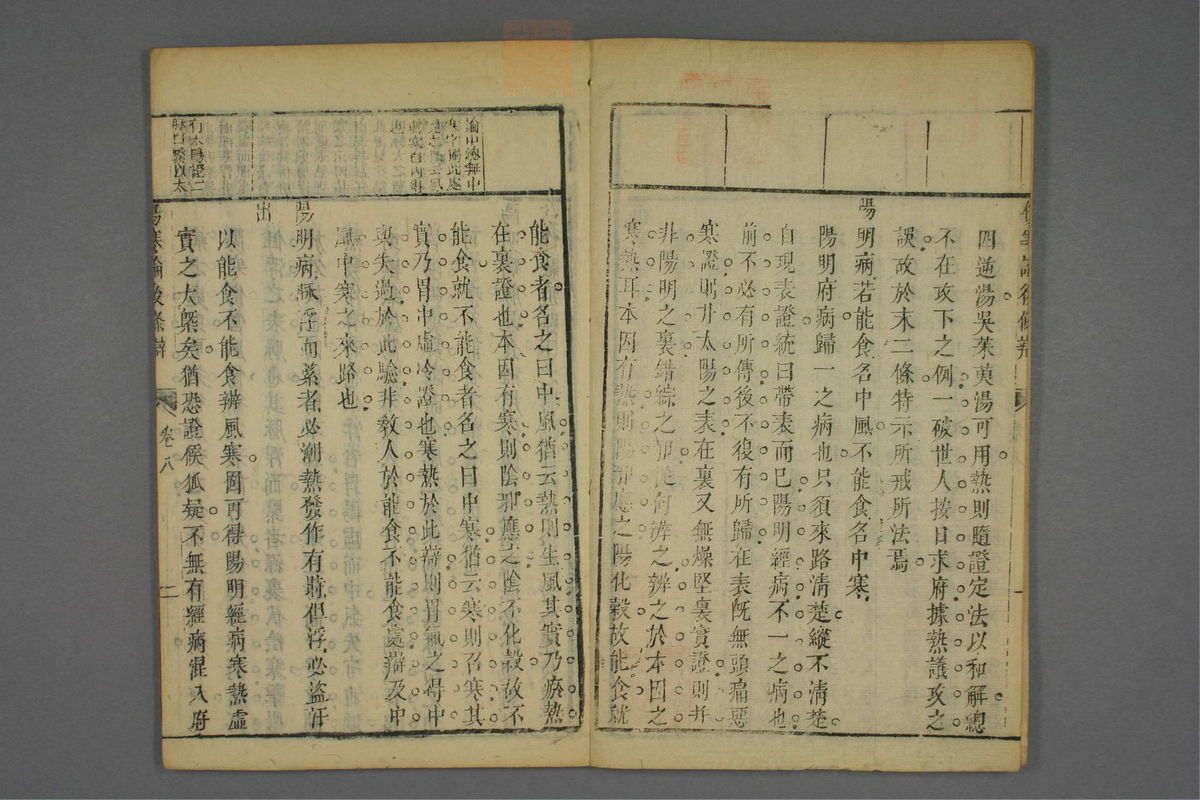 四逆湯吳茱萸湯可用熱則隨證定法以和解總
不在攻下之例一破世人按日求府據熱議攻之
誤故於末二條特示所戒所法焉
陽明病若能食名中風不能食名中寒
陽明府病歸一之病也只須來路清楚縱不清楚
自現表證統曰帶表而已陽明經病不一之病也
前不必有所傳後不復有所歸在表旣無頭痛惡
寒證則非太陽之表在裏又無燥堅裏實證則非
非陽明之裏錯綜之邪從何辨之辨之於本因之
寒熱耳本因有熱則陽邪應之陽化穀故能食就
能食者名之曰中風猶云熱則生風其實乃瘀熱
在裏證也本因有寒則陰邪應之陰不化穀故不
能食就不能食者名之曰中寒猶云寒則召寒其
實乃胃中虛冷證也寒熱於此辯則胃氣之得中
與失過於此驗非教人於能食不能食處辯及中
風中寒之來路也
論中總無中
陽明病脉浮而緊者必潮熱發作有時但浮必盜汗
出
以能食不能食辨風寒固可得陽明經病寒熱虛
實之大槩矣猶恐證候狐疑不無有經病混入府
有太陽證二
傷寒論後條辯
卷八
二